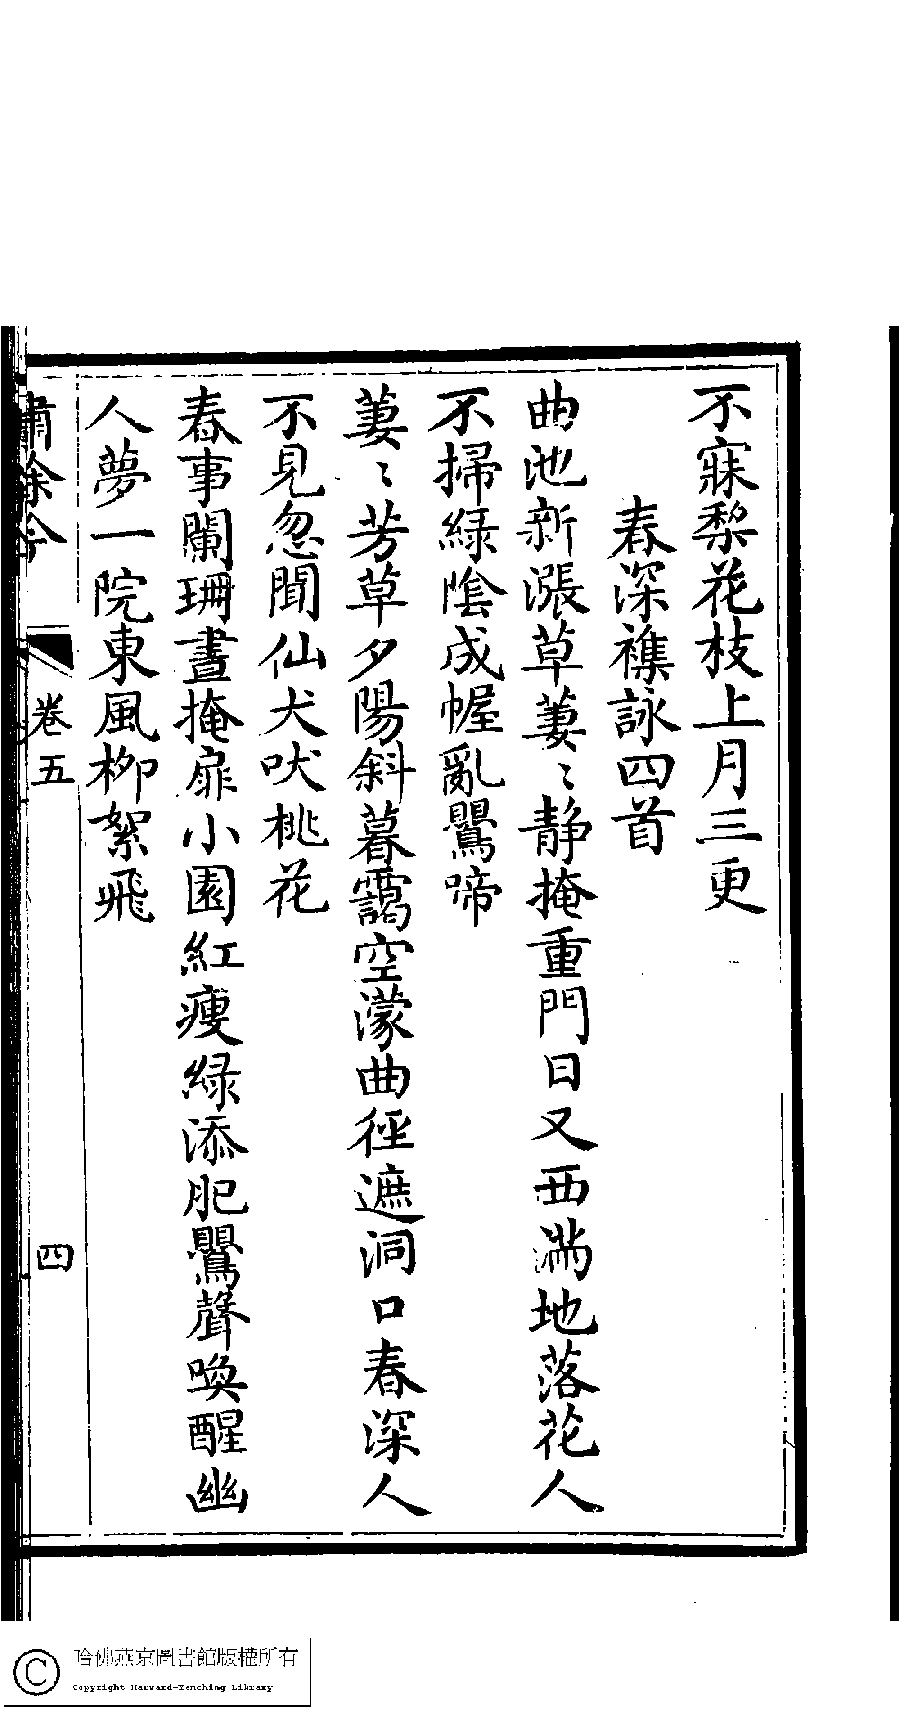 不寐梨花枝上月三更
春深襍詠四首
曲池新漲草萋〻静掩重門日又西満地落花人
不掃緑陰成幄亂鸎啼
萋〻芳草夕陽斜暮靄空濛曲徑遮洞口春深人
不見忽聞仙犬吠桃花
春事闌珊晝掩扉小園紅瘦緑添肥鸎聲喚醒幽
人夢一院東風柳絮飛
嘯餘吟
卷五
四
哈佛燕京圖書館版權所有
Copyright Harvard-Yenching Library